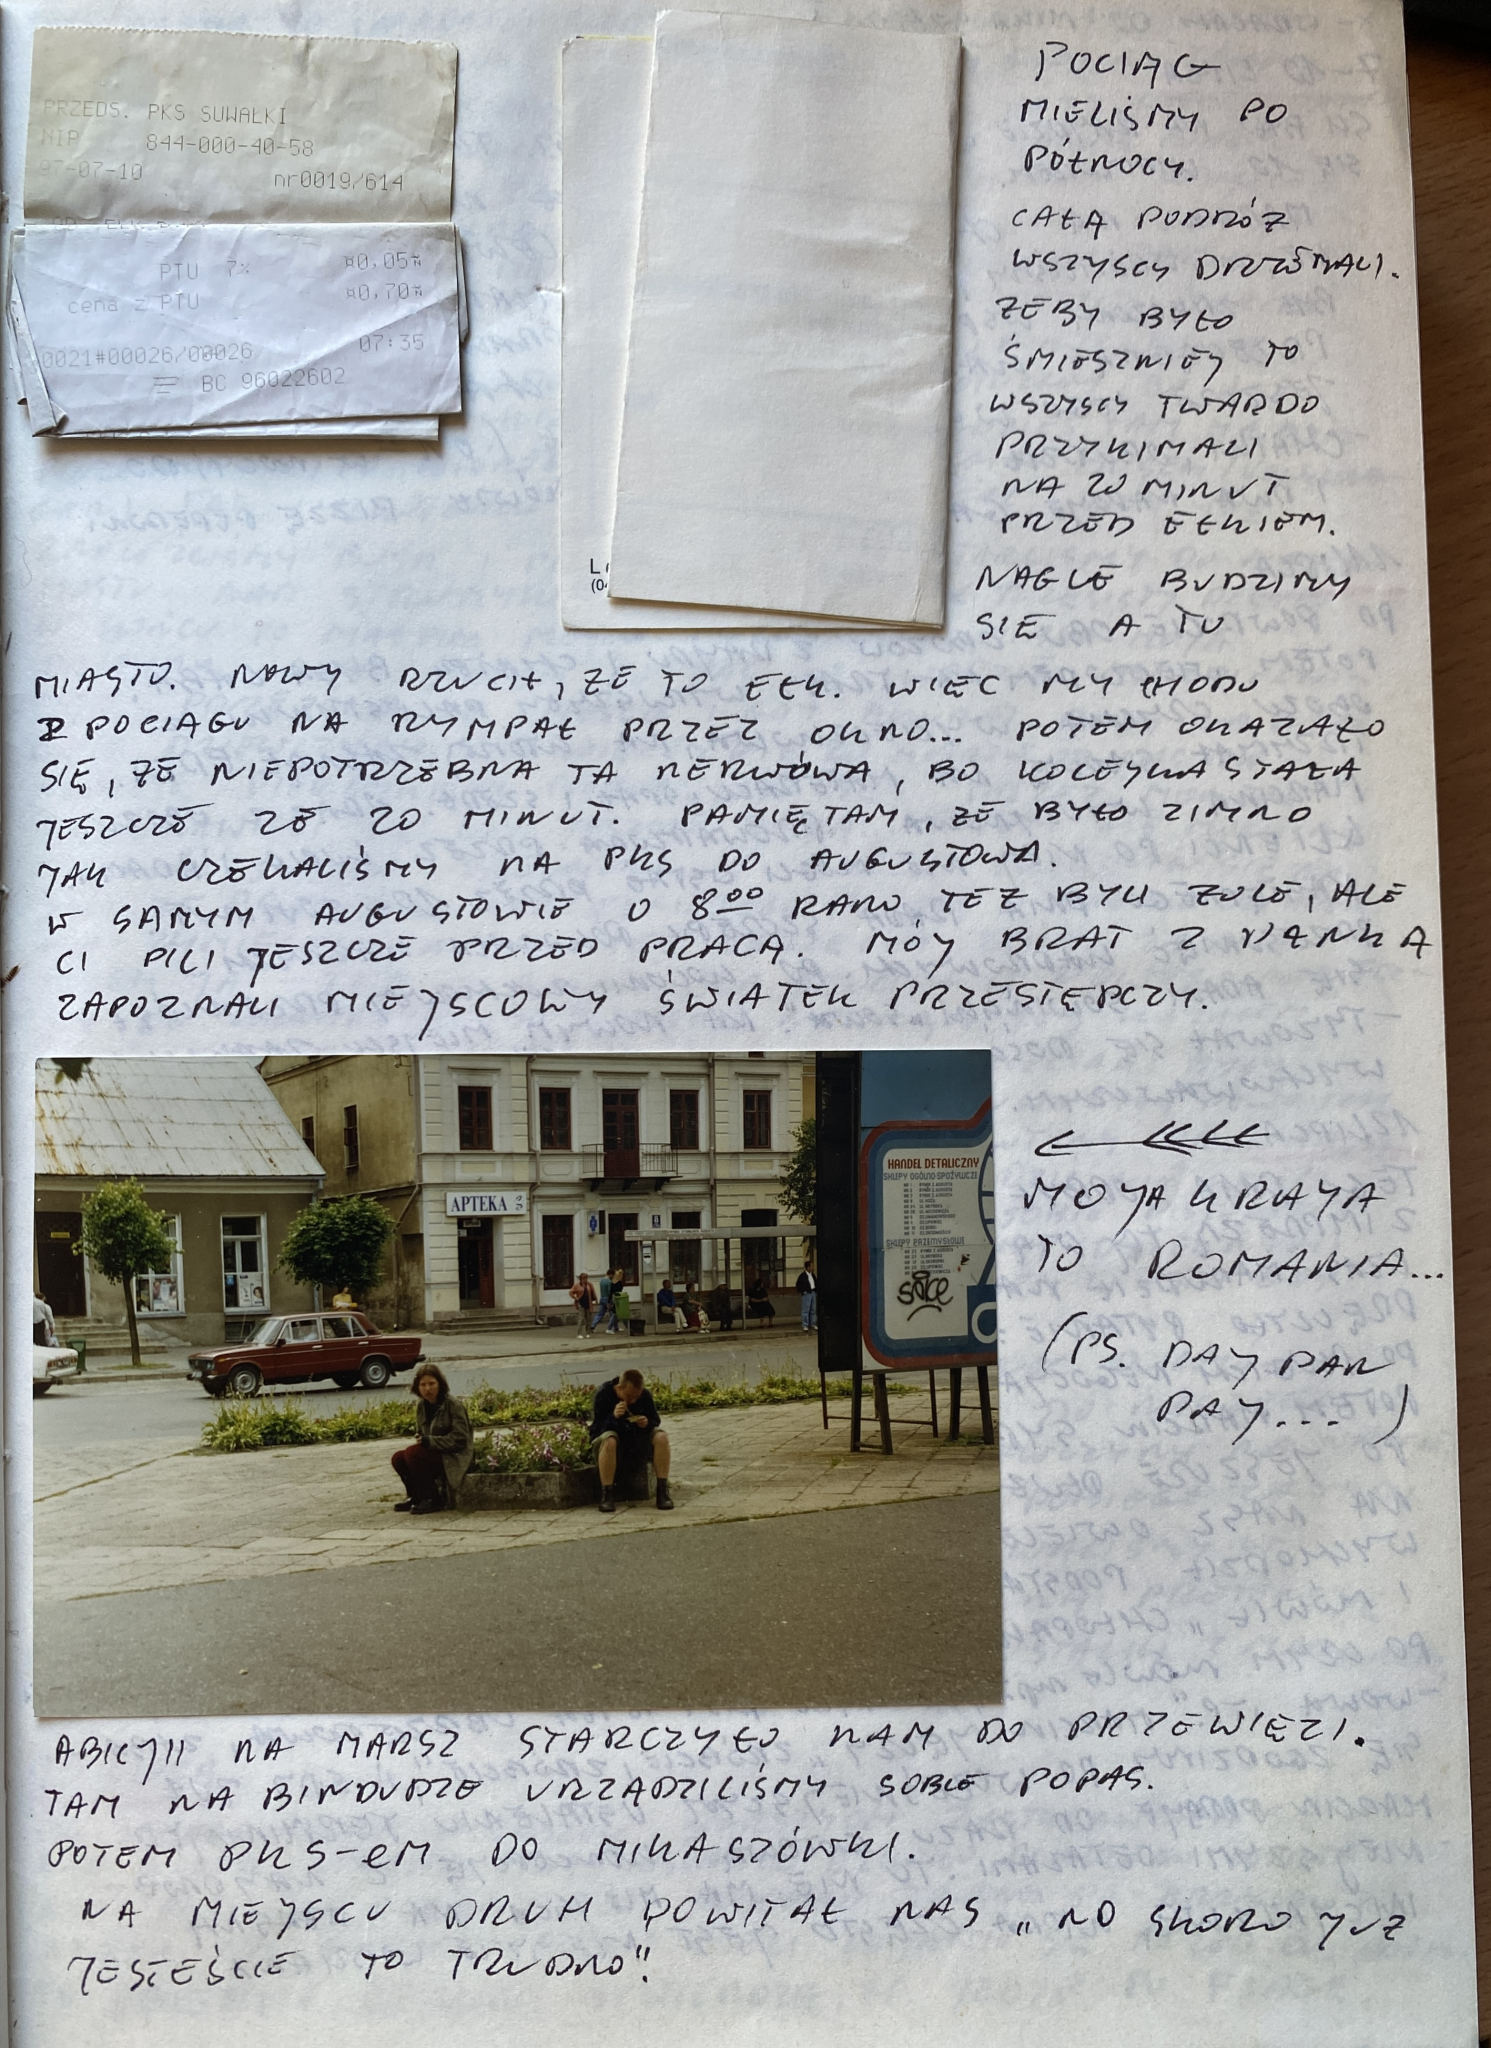 PRZEDS. PKS SUWAŁKI
NIP 844-000-40-58
97-07-10 nr0019/614
PTU 7% ¤0,05¤
cena z PTU ¤0,70¤
07:35
0021#00026/00026
BC 96022602
POCIĄG
MIELIŚMY PO
PÓŁNOCY.
CAŁĄ PODRÓŻ
WSZYSCY DRZEMALI.
ŻEBY BYŁO
ŚMIESZNIEJ TO
WSZYSCY TWARDO
PRZYKIMALI
NA 20 MINUT
PRZED EŁKIEM.
NAGLE BUDZIMY
SIĘ A TU
MIASTO. NOWY RZUCIŁ, ŻE TO EŁK. WIĘC MY CHODU
Z POCIĄGU NA RYMPAŁ PRZEZ OKNO... POTEM OKAZAŁO
SIĘ, ŻE NIEPOTRZEBNA TA NERWÓWA, BO KOLEJKA STAŁA
JESZCZE ZE 20 MINUT. PAMIĘTAM, ŻE BYŁO ZIMNO
JAK CZEKALIŚMY NA PKS DO AUGUSTOWA.
W SAMYM AUGUSTOWIE O 8⁰⁰ RANO TEŻ BYLI ŻULE, ALE
CI PILI JESZCZE PRZED PRACĄ. MÓJ BRAT Z
ZAPOZNALI MIEJSCOWY ŚWIATEK PRZESTĘPCZY.
APTEKA
HANDEL DETALICZNY
SKLEPY OGÓLNO SPOŻYWCZE
SKLEPY PRZEMYSŁOWE
MOJA KRAJA
TO ROMANIA...
(PS. DAJ PAN
PAJ... )
ABICJII NA MARSZ STARCZYŁO NAM DO PRZEWIĘZI.
TAM NA BINDUDZE URZĄDZILIŚMY SOBIE POPAS.
POTEM PKS-eM DO MIKASZÓWKI.
NA MIEJSCU DRUH POWITAŁ NAS „NO SKORO JUŻ
JESTEŚCIE TO TRUDNO".